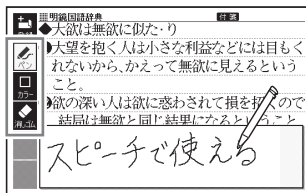 明鏡国語辞典
付箋
◆大欲は無欲に似た・り
大望を抱く人は小さな利益などには目もく
れないから、かえって無欲に見えるという
こと。
欲の深い人は欲に惑わされて損を招くので
結局は無欲と同じ結果になるということ
ペン
カラー
消しゴム
スピーチで使える